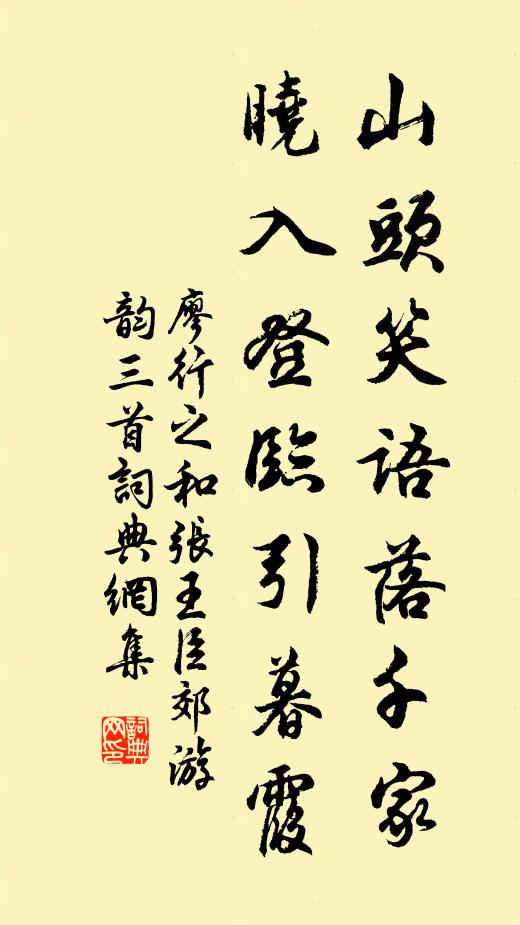 山頭笑語落千家
曉入登臨引暮霞
廖行之和張王臣郊游
韵三首詞典網集
詞典網印